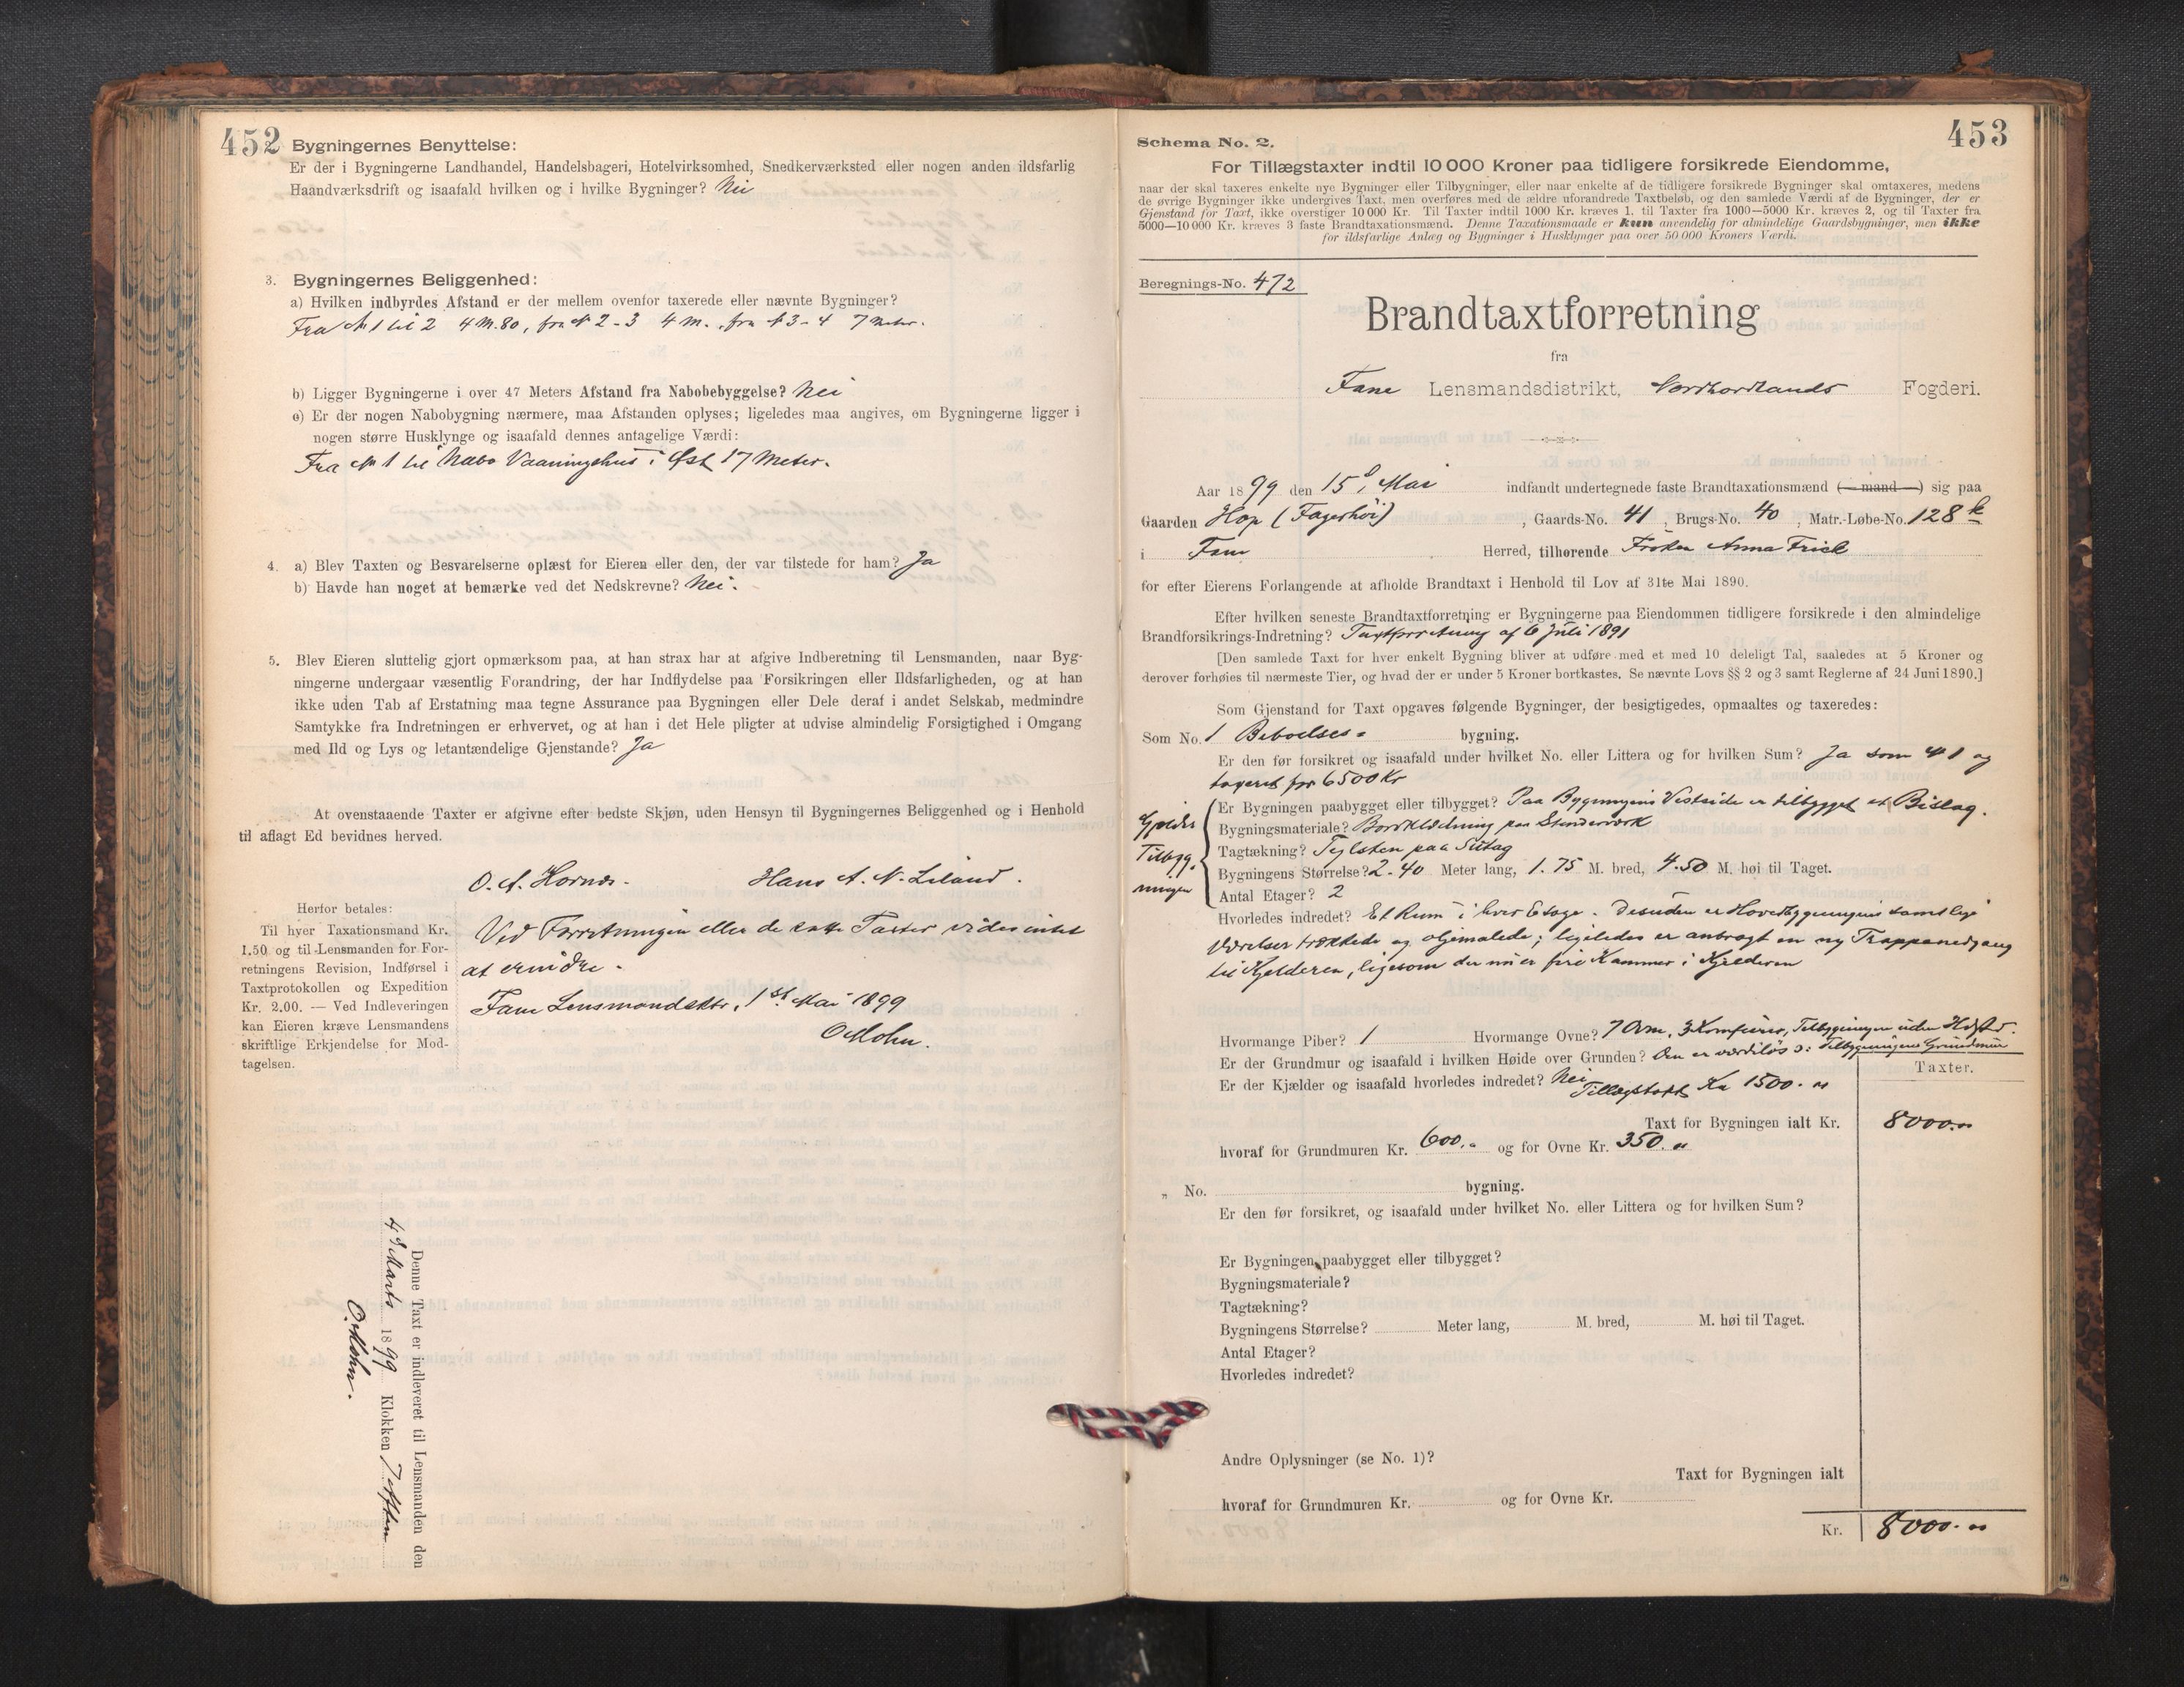 452
Bygningernes Benyttelse:
Er der i Bygningerne Landhandel, Handelsbageri, Hotelvirksomhed, Snedkerværksted eller nogen anden ildsfarlig
Haandværksdrift og isaafald hvilken og i hvilke Bygninger? Nei
3. Bygningernes Beliggenhed:
a) Hvilken indbyrdes Afstand er der mellem ovenfor taxerede eller nævnte Bygninger?
Fra № 1 til 2 4 M. 80, fra № 2-3 4 M., fra № 3-4 7 Meter.
b) Ligger Bygningerne i over 47 Meters Afstand fra Nabobebyggelse? Nei
c) Er der nogen Nabobygning nærmere, maa Afstanden oplyses; ligeledes maa angives, om Bygningerne ligger i
nogen større Husklynge og isaafald dennes antagelige Værdi:
Fra № 1 til Nabo Vaaningshus i Øst 17 Meter.
4. a) Blev Taxten og Besvarelserne oplæst for Eieren eller den, der var tilstede for ham? Ja
b) Havde han noget at bemærke ved det Nedskrevne? Nei.
5. Blev Eieren sluttelig gjort opmærksom paa, at han strax har at afgive Indberetning til Lensmanden, naar Byg-
ningerne undergaar væsentlig Forandring, der har Indflydelse paa Forsikringen eller Ildsfarligheden, og at han
ikke uden Tab af Erstatning maa tegne Assurance paa Bygningen eller Dele deraf i andet Selskab, medmindre
Samtykke fra Indretningen er erhvervet, og at han i det Hele pligter at udvise almindelig Forsigtighed i Omgang
med Ild og Lys og letantændelige Gjenstande? Ja
At ovenstaaende Taxter er afgivne efter bedste Skjøn, uden Hensyn til Bygningernes Beliggenhed og i Henhold
til aflagt Ed bevidnes herved.
O. A. Hornes. Hans A. N. Liland.
Herfor betales:
Til hver Taxationsmand Kr.
1.50 og til Lensmanden for For-
retningens Revision, Indførsel i
Taxtprotokollen og Expedition
Kr. 2.00. — Ved Indleveringen
kan Eieren kræve Lensmandens
skriftlige Erkjendelse for Mod-
tagelsen.
Ved Forretningen eller de satte Taxter vides intet
at erindre.
Fane Lensmandsktr., 1st Mai 1899
O Mohn.
Denne Taxt er indleveret til Lensmanden den
4de Marts 1899 Klokken 7 Aften
O. Mohn.
453
Schema No. 2.
For Tillægstaxter indtil 10 000 Kroner paa tidligere forsikrede Eiendomme,
naar der skal taxeres enkelte nye Bygninger eller Tilbygninger, eller naar enkelte af de tidligere forsikrede Bygninger skal omtaxeres, medens
de øvrige Bygninger ikke undergives Taxt, men overføres med de ældre uforandrede Taxtbeløb, og den samlede Værdi af de Bygninger, der er
Gjenstand for Taxt, ikke overstiger 10 000 Kr. Til Taxter indtil 1000 Kr. kræves 1, til Taxter fra 1000—5000 Kr. kræves 2, og til Taxter fra
5000—10 000 Kr. kræves 3 faste Brandtaxationsmænd. Denne Taxationsmaade er kun anvendelig for almindelige Gaardsbygninger, men ikke
for ildsfarlige Anlæg og Bygninger i Husklynger paa over 50 000 Kroners Værdi.
Beregnings-No. 472
Brandtaxtforretning
fra
Fane Lensmandsdistrikt, Nordhordlands Fogderi.
Aar 1899 den 15d, Mai indfandt undertegnede faste Brandtaxationsmænd (— mand —) sig paa
Gaarden Hop (Fagerhøi), Gaards-No. 41, Brugs-No. 40, Matr.-Løbe-No. 128 k
i Fane Herred, tilhørende Frøken Anna Friele
for efter Eierens Forlangende at afholde Brandtaxt i Henhold til Lov af 31te Mai 1890.
Efter hvilken seneste Brandtaxtforretning er Bygningerne paa Eiendommen tidligere forsikrede i den almindelige
Brandforsikrings-Indretning? Taxtforretning af 6 Juli 1891
[Den samlede Taxt for hver enkelt Bygning bliver at udføre med et med 10 deleligt Tal, saaledes at 5 Kroner og
derover forhøies til nærmeste Tier, og hvad der er under 5 Kroner bortkastes. Se nævnte Lovs §§ 2 og 3 samt Reglerne af 24 Juni 1890.]
Som Gjenstand for Taxt opgaves følgende Bygninger, der besigtigedes, opmaaltes og taxeredes:
Som No. 1 Beboelses- bygning.
Er den før forsikret og isaafald under hvilket No. eller Littera og for hvilken Sum? Ja som № 1 og
taxeret for 6500 Kr
Gjælder Tilbygningen
Er Bygningen paabygget eller tilbygget? Paa Bygningens Vestside er tilbygget et Bislag.
Bygningsmateriale? Bordklædning paa Stenderværk
Tagtækning? Teglsten paa Sutag
Bygningens Størrelse? 2-40 Meter lang, 1.75 M. bred, 4.50 M. høi til Taget.
Antal Etager? 2
Hvorledes indredet? Et Rum i hver Etage. Desuden er Hovedbygningens samtlige
Værelser trækkede og oljemalede; ligeledes er anbragt en ny Trappenedgang
til Kjelderen, ligesom der nu er fire Kammer i Kjelderen
Hvormange Piber? 1 Hvormange Ovne? 7 Ovne, 3 Komfurer, Tilbygningen uden Ildsted.
Er der Grundmur og isaafald i hvilken Høide over Grunden? Den er værdiløs ɔ: Tilbygningens Grundmur
Er der Kjælder og isaafald hvorledes indredet? Nei
Tillægstaxt Kr 1500.
Taxter.
Taxt for Bygningen ialt Kr. 8000.
hvoraf for Grundmuren Kr. 600. og for Ovne Kr. 350.
„ No. bygning.
Er den før forsikret, og isaafald under hvilket No. eller Littera og for hvilken Sum?
Er Bygningen paabygget eller tilbygget?
Bygningsmateriale?
Tagtækning?
Bygningens Størrelse? Meter lang, M. bred, M. høi til Taget.
Antal Etager?
Hvorledes indredet?
Andre Oplysninger (se No. 1)?
Taxt for Bygningen ialt
hvoraf for Grundmuren Kr. og for Ovne Kr.
Kr. 8000.